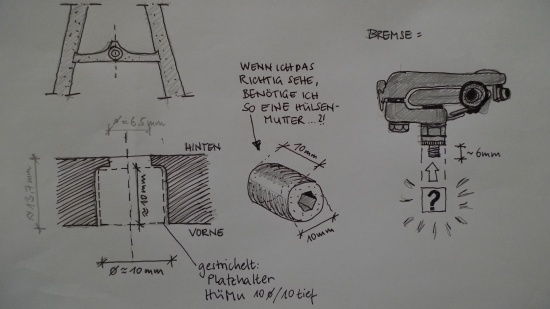 BREMSE =
WENN ICH DAS
RICHTIG SEHE,
BENÖTIGE ICH
SO EINE HÜLSEN-
MUTTER...?!
Ø≈6.5mm
HINTEN
≈13,7mm
≈10mm
VORNE
Ø≈10mm
gestrichelt:
Platzhalter
HüMu 10Ø/10tief
10mm
10mm
~6mm
?